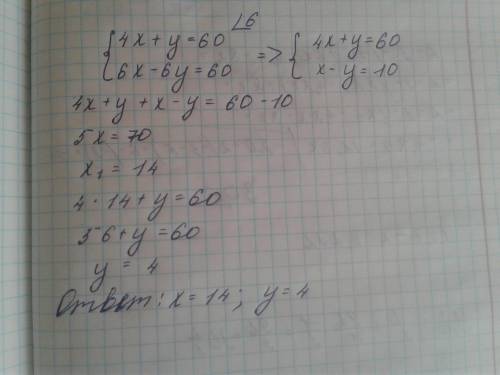 {4x+y=60 |6 => {4x+y=60
{6x-6y=60 {x-y=10
4x+y+x-y=60-10
5x=70
x₁=14
4·14+y=60
56+y=60
y=4
Ответ: x=14; y=4